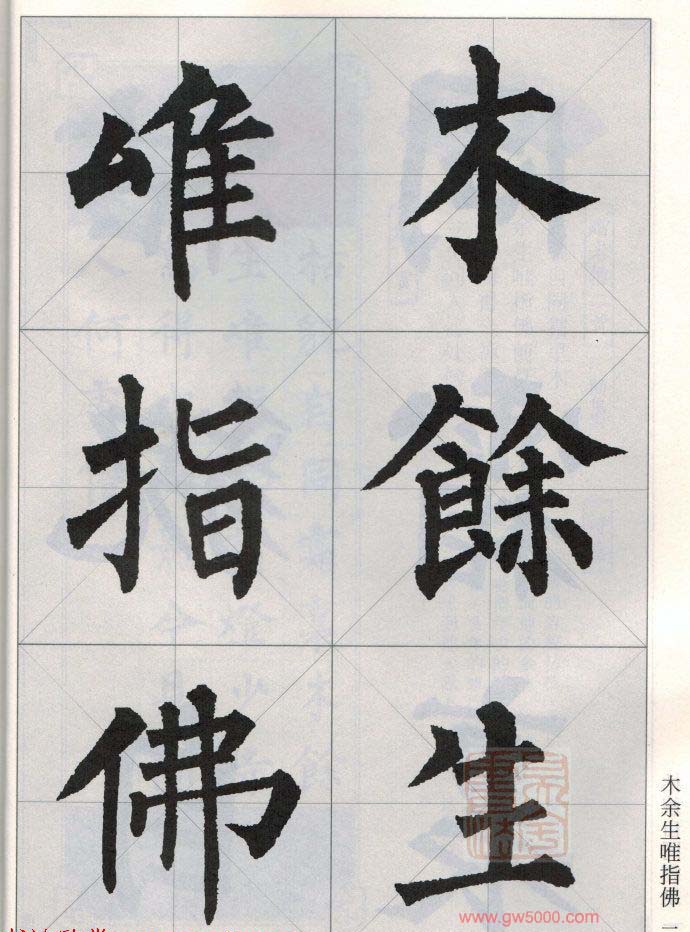 木餘生
唯指佛
木余生唯指佛 一
www.gw5000.com